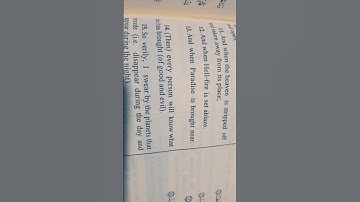 and taken away from its place;
11. And when the heaven is stripped off
12. And when Hell-fire is set ablaze.
13. And when Paradise is brought near.
14. (Then) every person will know what
he has brought (of good and evil).
15. So verily, I swear by the planets that
recede (i.e. disappear during the day and
appear during the night).